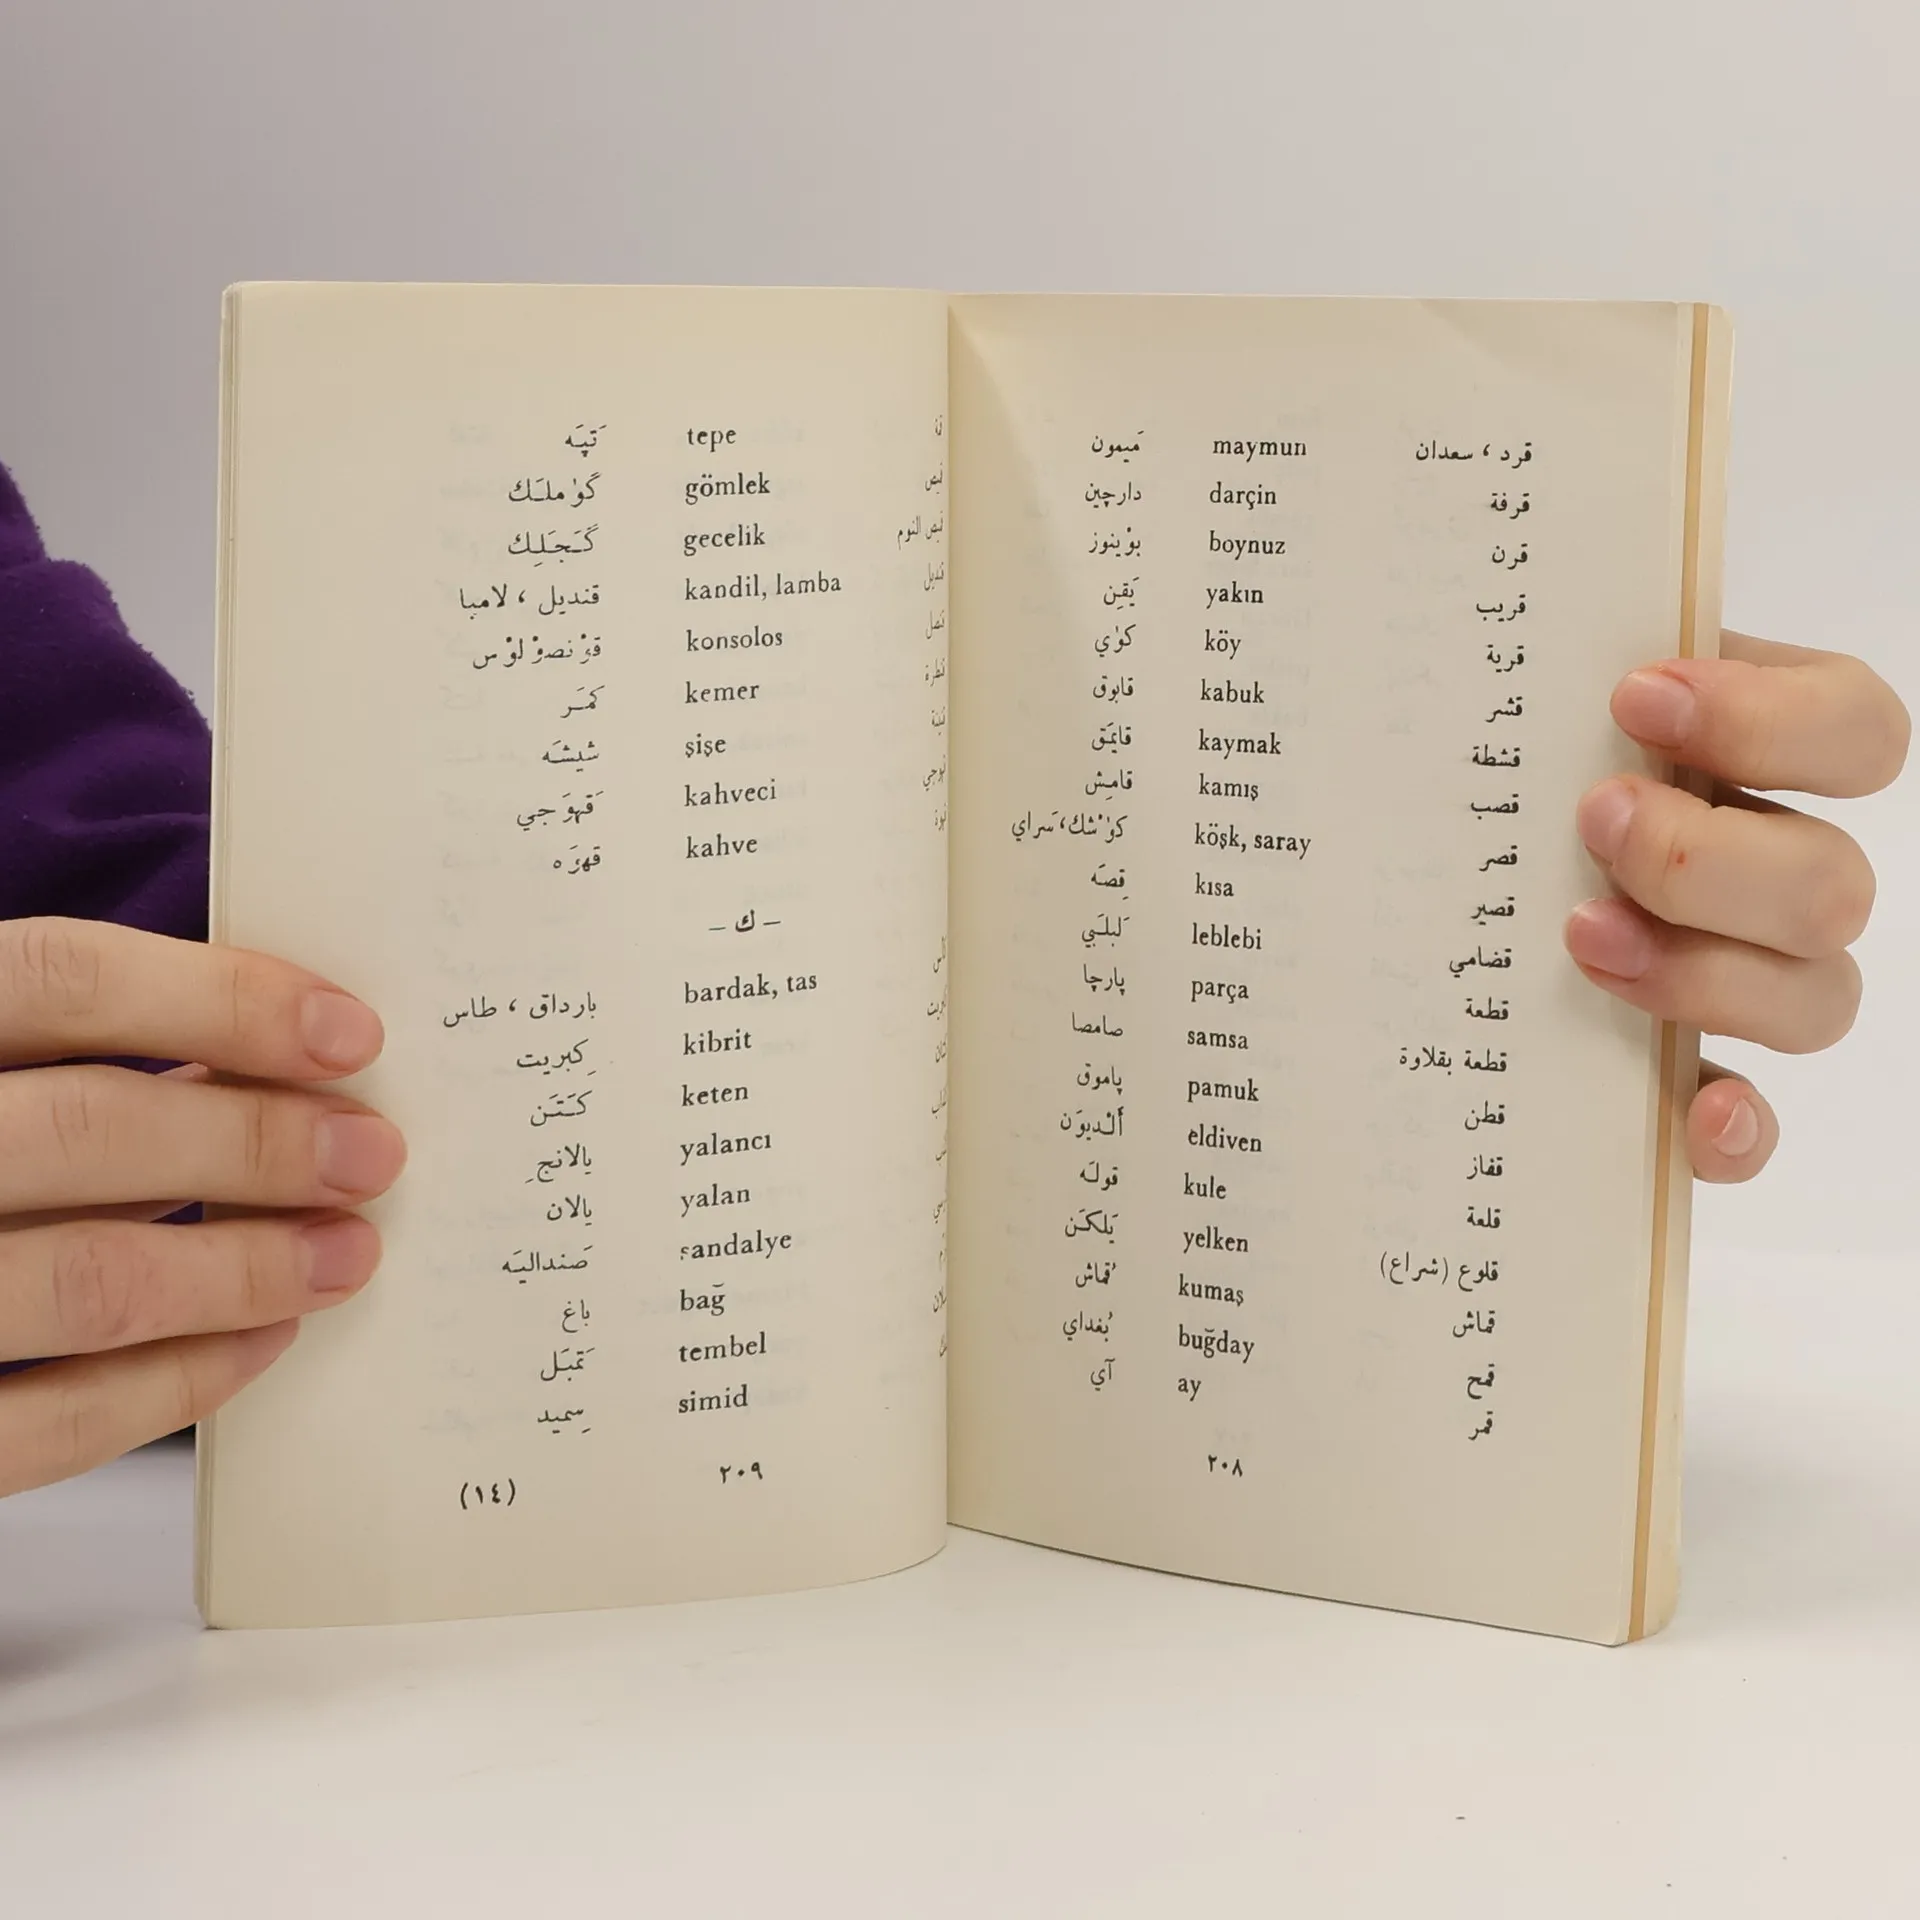 قرد ، سعدان maymun مَيمون
قرفة darçin دارچين
قرن boynuz بوْينوز
قريب yakın يَقِن
قرية köy كوٰي
قشر kabuk قابوق
قشطة kaymak قايمَق
قصب kamış قامِش
قصر köşk, saray كوٰشك، سَراي
قصير kısa قِصَه
قضامي leblebi لَبلَبي
قطعة parça پارچا
قطعة بقلاوة samsa صامصا
قطن pamuk پاموق
قفاز eldiven أَلْديوَن
قلعة kule قولَه
قلوع (شراع) yelken يَلكَن
قماش kumaş قُماش
قمح buğday بُغداي
قمر ay آي
٢٠٨
tepe تَپَه
gömlek گوٰملَك
قميص النوم gecelik گَجَلِك
قنديل kandil, lamba قنديل ، لامبا
konsolos قوْنصوْلوْس
kemer كمَر
şişe شيشَه
kahveci قَهوَجي
kahve قهوَه
– ك –
bardak, tas بارداق ، طاس
kibrit كِبريت
keten كَتَن
yalancı يالانجِ
yalan يالان
sandalye صَنداليَه
bağ باغ
tembel تَمبَل
simid سِميد
٢٠٩
(١٤)